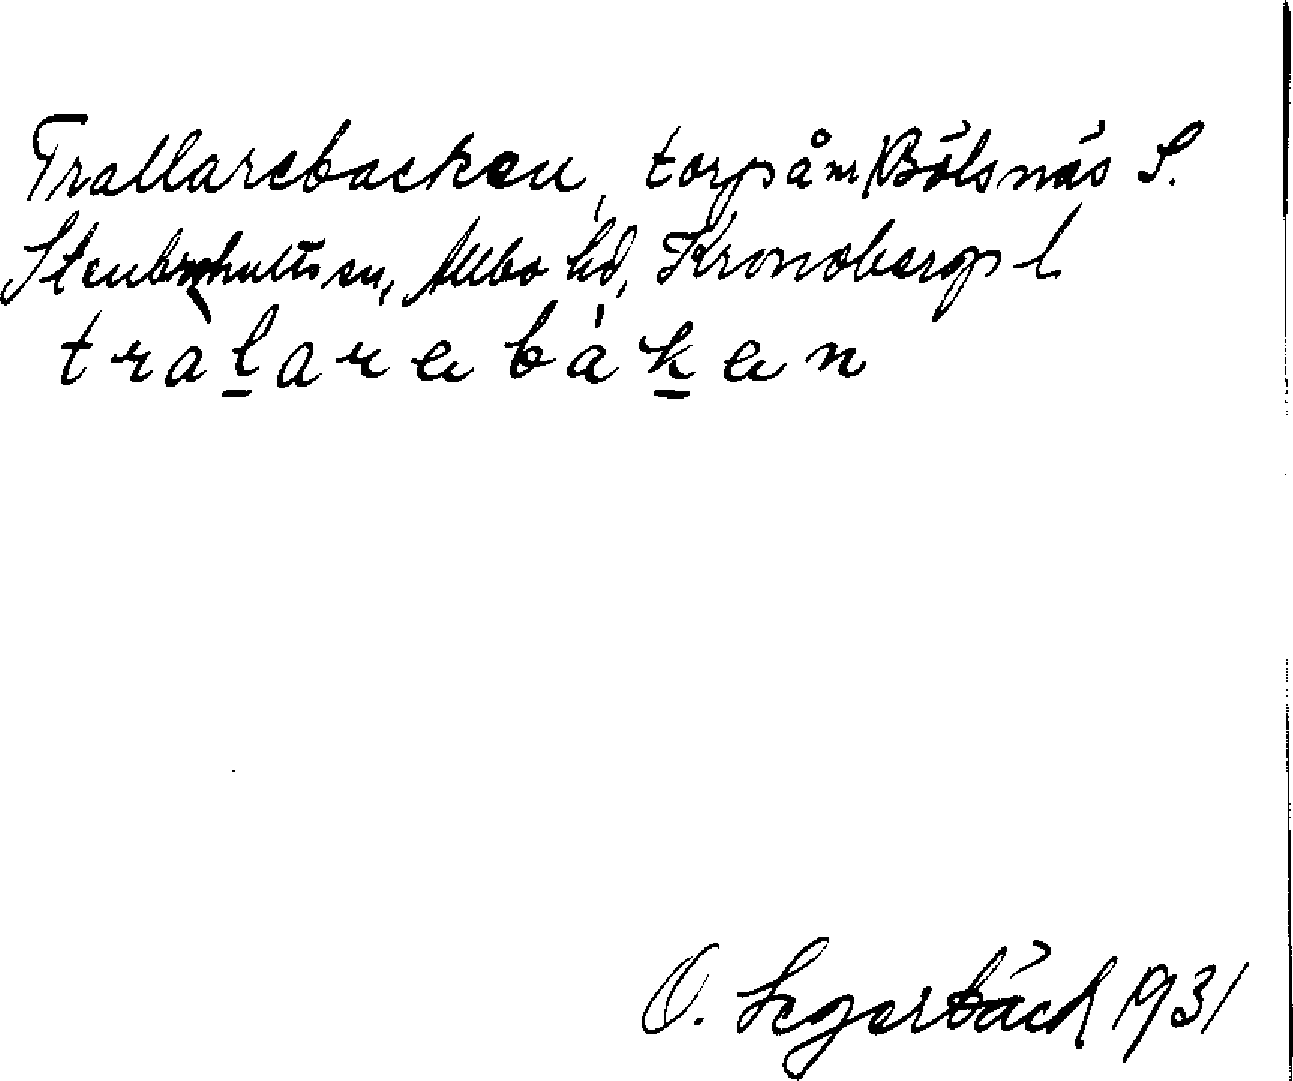 Trallarebacken, torp å m/Bölsnäs S.
Stenbrohults sn, Allbo hd, Kronobergs l
tràlarebákän
O. Segerbäck 1931